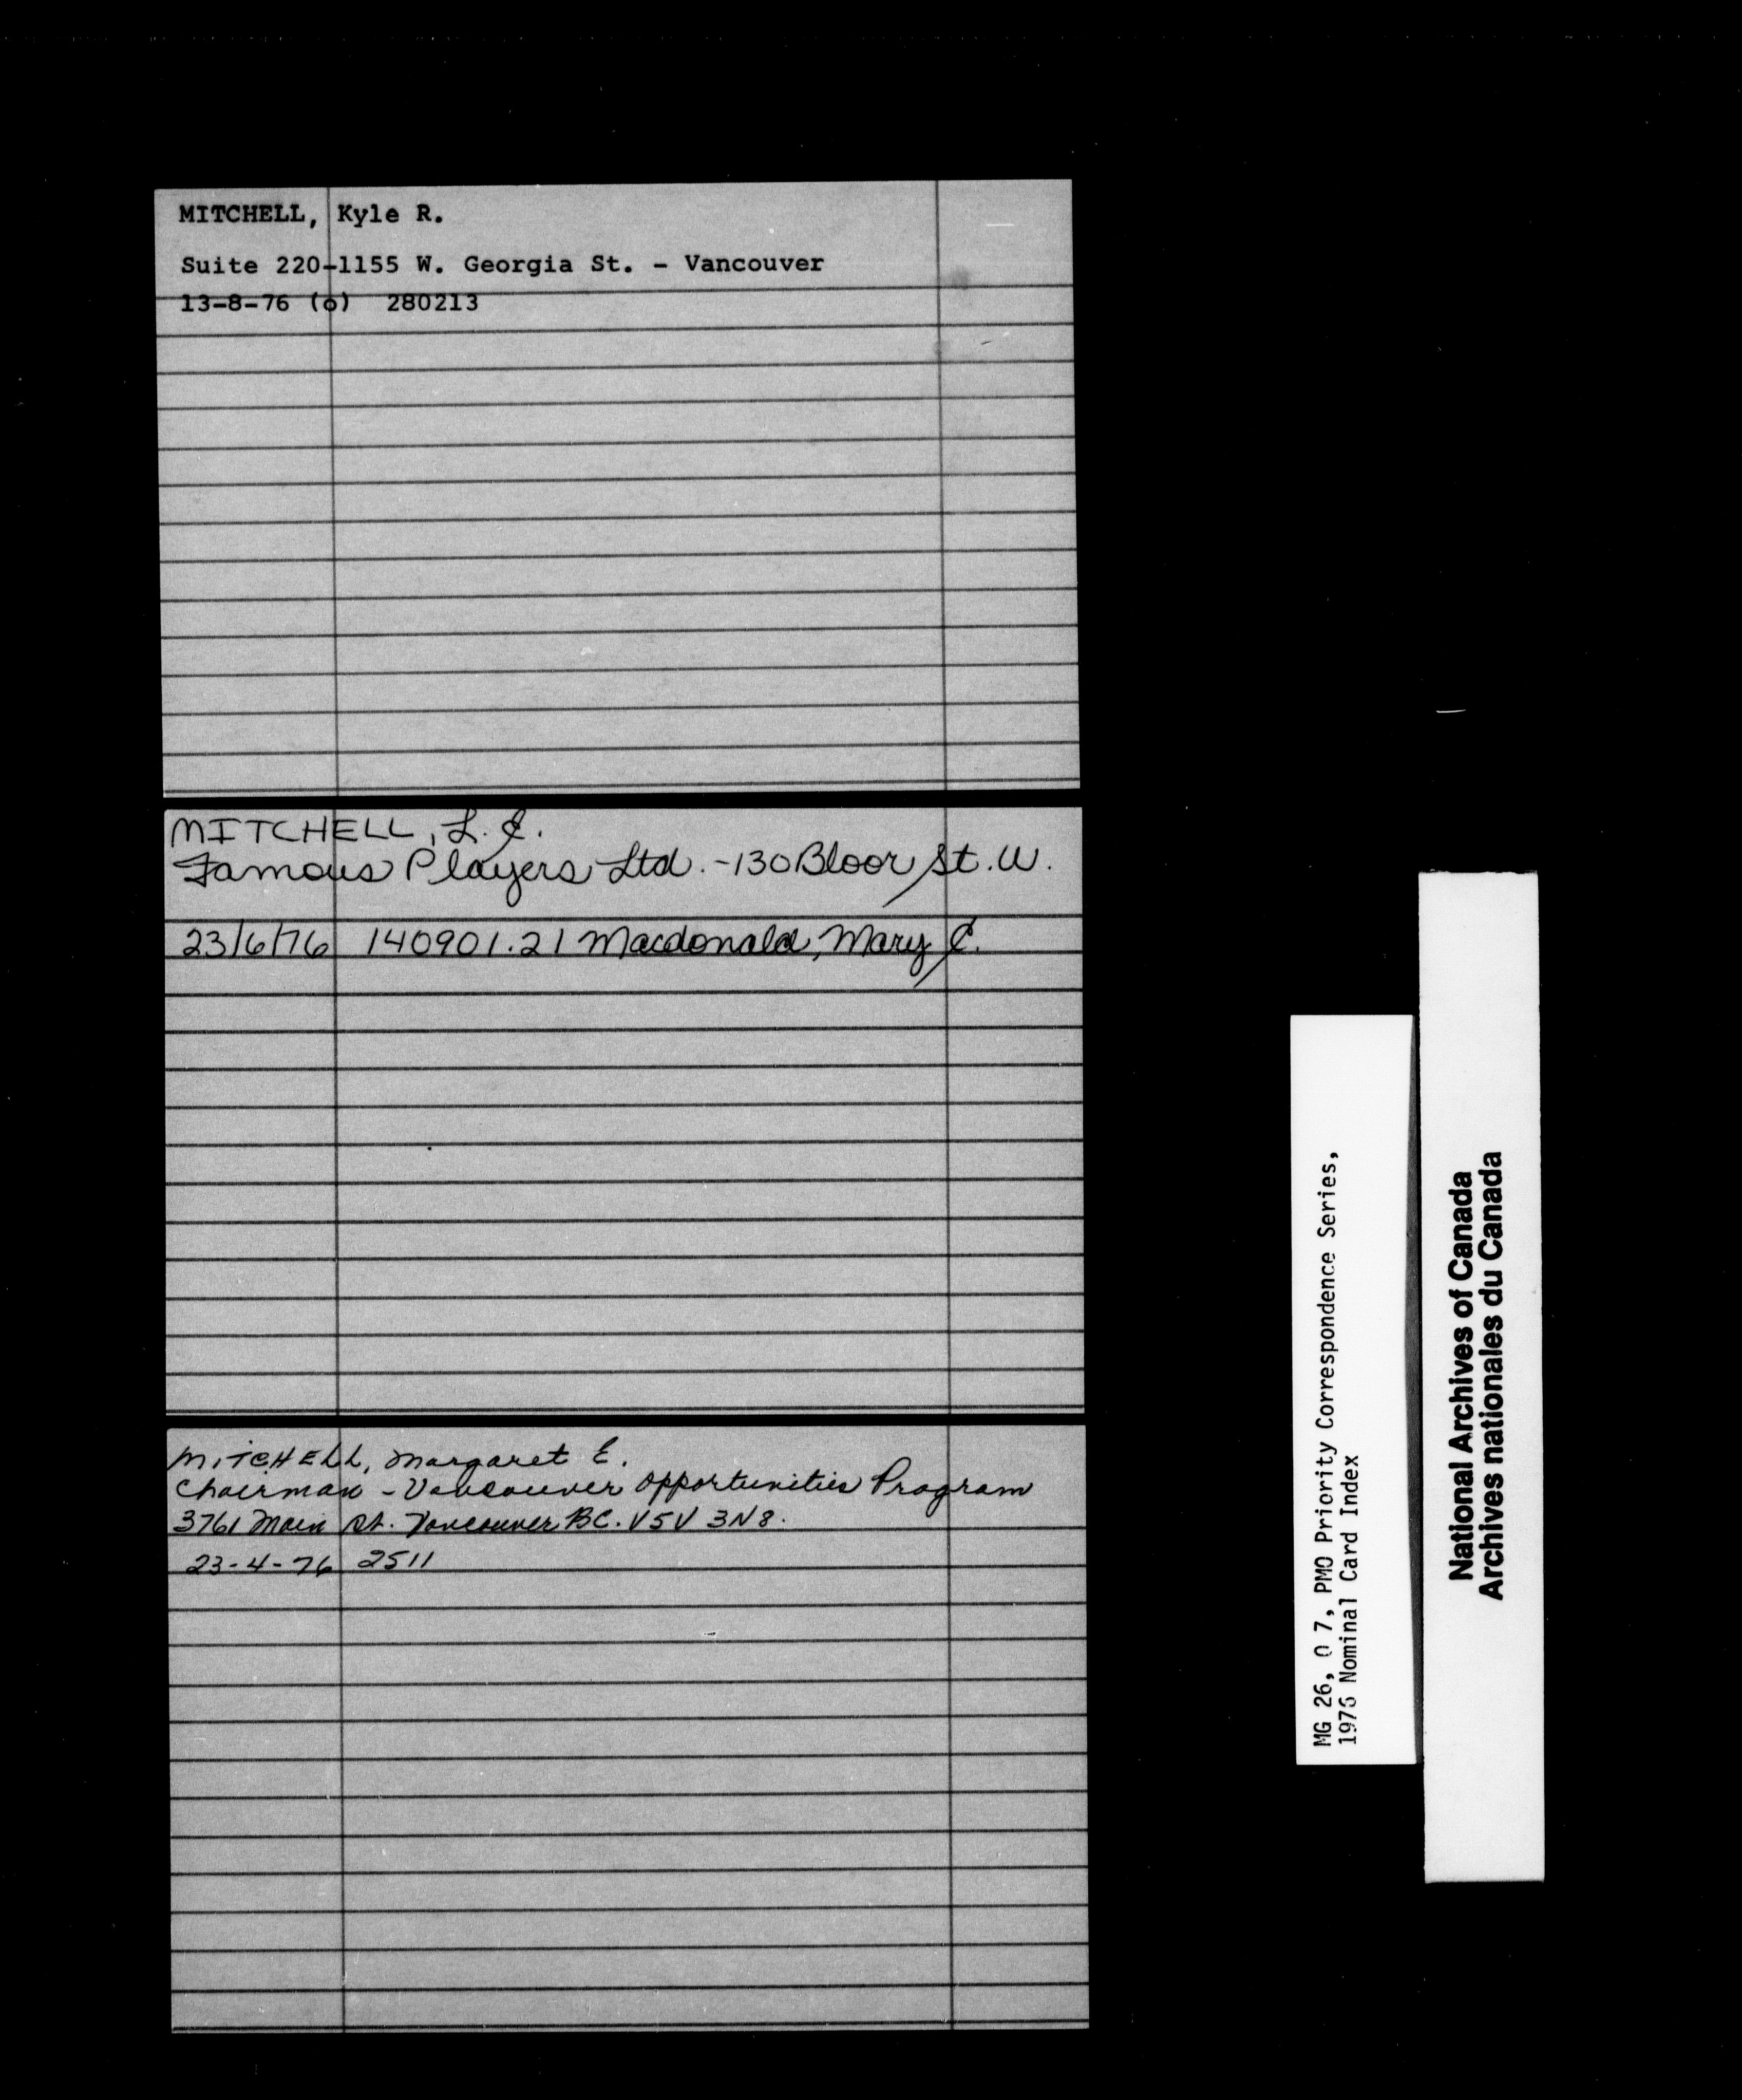 MITCHELL, Kyle R.
Suite 220-1155 W. Georgia St. - Vancouver
13-8-76 (o) 280213
MITCHELL, L. E.
Famous Players Ltd. -130 Bloor St. W.
23/6/76 140901.21 Macdonald, Mary E.
MITCHELL, Margaret E.
Chairman - Vancouver Opportunities Program
3761 Main St. Vancouver BC. V5V 3N8.
23-4-76 2511
MG 26, O 7, PMO Priority Correspondence Series,
1976 Nominal Card Index
National Archives of Canada
Archives nationales du Canada